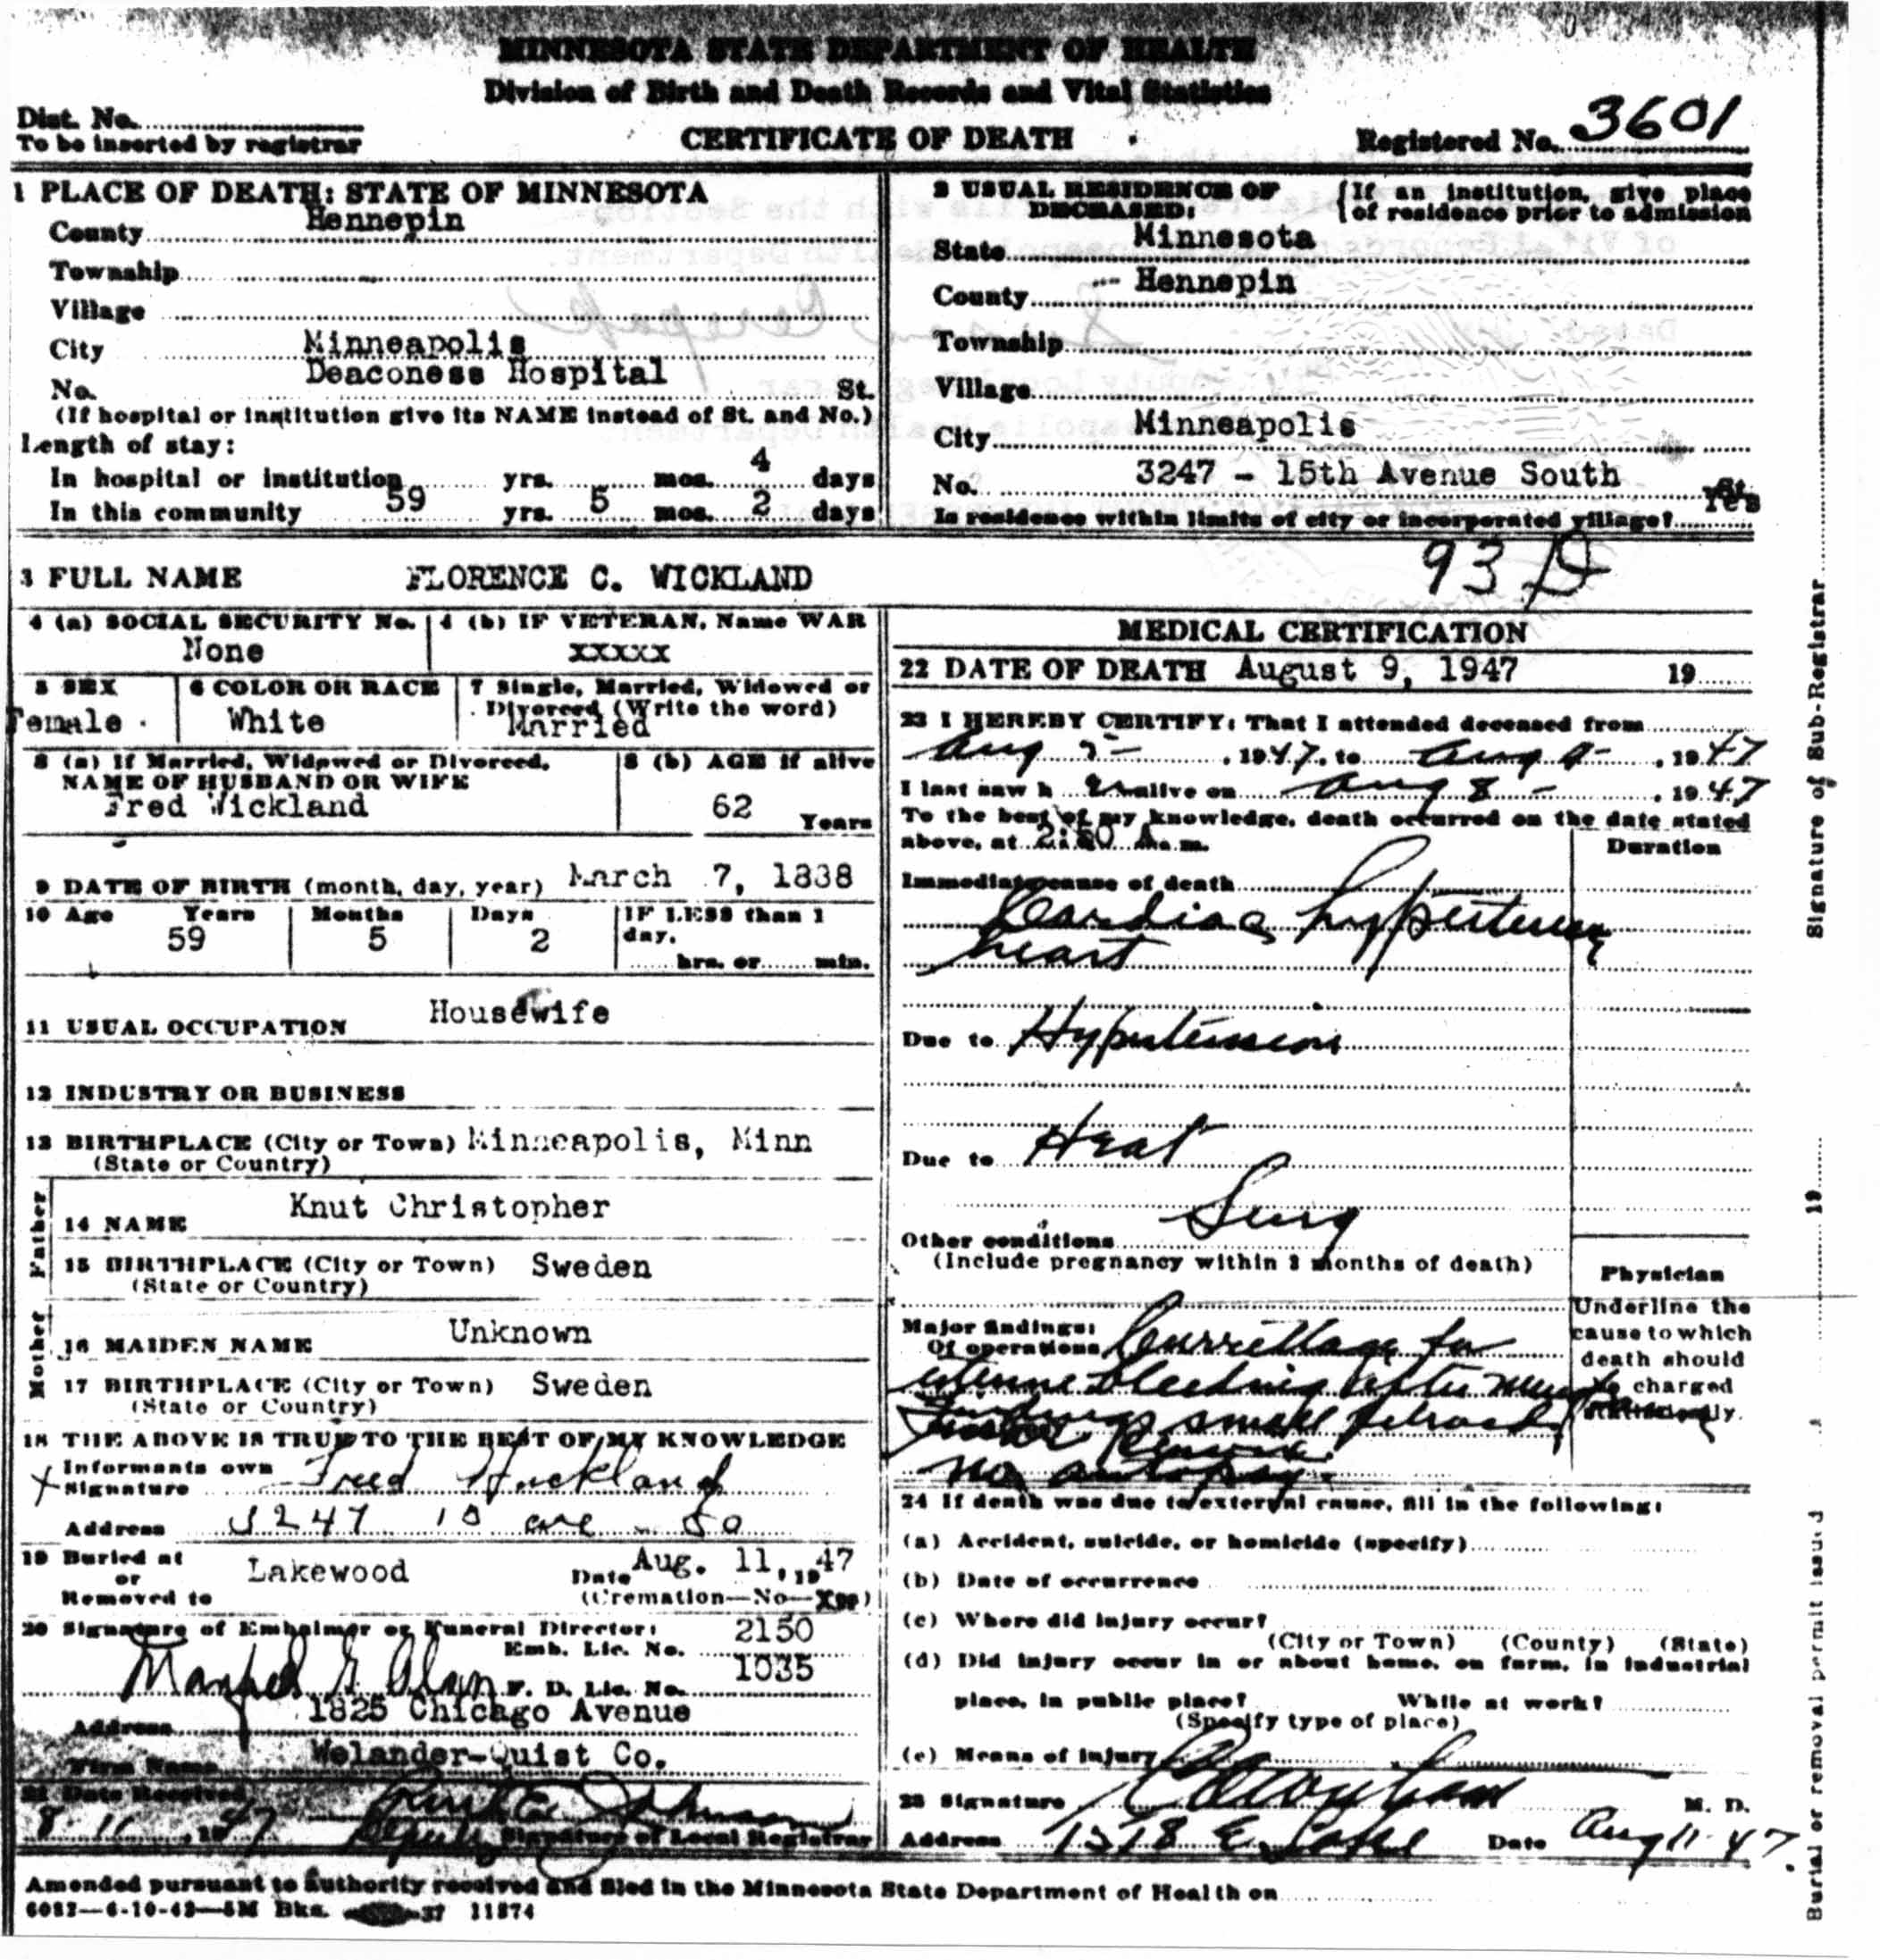 MINNESOTA STATE DEPARTMENT OF HEALTH
Division of Birth and Death Records and Vital Statistics
Dist. No.
To be inserted by registrar
CERTIFICATE OF DEATH
Registered No. 3601
1 PLACE OF DEATH: STATE OF MINNESOTA
County Hennepin
Township
Village
City Minneapolis
No. Deaconess Hospital St.
(If hospital or institution give its NAME instead of St. and No.)
Length of stay:
In hospital or institution yrs. mos. 4 days
In this community 59 yrs. 5 mos. 2 days
2 USUAL RESIDENCE OF DECEASED: (If an institution, give place of residence prior to admission
State Minnesota
County Hennepin
Township
Village
City Minneapolis
No. 3247 - 15th Avenue South St.
Is residence within limits of city or incorporated village? Yes
3 FULL NAME FLORENCE C. WICKLAND
93 D
4 (a) SOCIAL SECURITY No. None
4 (b) IF VETERAN, Name WAR xxxxx
5 SEX Female
6 COLOR OR RACE White
7 Single, Married, Widowed or Divorced (Write the word) Married
8 (a) If Married, Widowed or Divorced, NAME OF HUSBAND OR WIFE Fred Wickland
8 (b) AGE if alive 62 Years
9 DATE OF BIRTH (month, day, year) March 7, 1888
10 Age Years 59 Months 5 Days 2 IF LESS than 1 day, hrs. or min.
11 USUAL OCCUPATION Housewife
12 INDUSTRY OR BUSINESS
13 BIRTHPLACE (City or Town) Minneapolis, Minn
(State or Country)
Father
14 NAME Knut Christopher
15 BIRTHPLACE (City or Town) Sweden
(State or Country)
Mother
16 MAIDEN NAME Unknown
17 BIRTHPLACE (City or Town) Sweden
(State or Country)
18 THE ABOVE IS TRUE TO THE BEST OF MY KNOWLEDGE
Informants own Signature Fred Wickland
Address 3247 15 ave So
19 Buried at or Removed to Lakewood Date Aug. 11, 1947
(Cremation—No—Yes)
20 Signature of Embalmer or Funeral Director:
Emb. Lic. No. 2150
F. D. Lic. No. 1035
Address 1825 Chicago Avenue
Firm Name Welander-Quist Co.
21 Date Received 8-11, 1947
Johnson
Deputy Signature of Local Registrar
MEDICAL CERTIFICATION
22 DATE OF DEATH August 9, 1947 19
23 I HEREBY CERTIFY: That I attended deceased from
Aug , 1947, to Aug , 1947
I last saw h alive on Aug 8 , 1947
To the best of my knowledge, death occurred on the date stated
above, at A. m.
Duration
Immediate cause of death
Cardiac
heart
Due to Hypertension
Due to Heat
Other conditions
(Include pregnancy within 3 months of death)
Major findings:
Of operations Currettage for
uterine bleeding after
small fibroid
no autopsy
Physician
Underline the cause to which death should be charged statistically.
24 If death was due to external cause, fill in the following:
(a) Accident, suicide, or homicide (specify)
(b) Date of occurrence
(c) Where did injury occur?
(City or Town) (County) (State)
(d) Did injury occur in or about home, on farm, in industrial
place, in public place? While at work?
(Specify type of place)
(e) Means of injury
25 Signature M. D.
Address 1518 E. Lake Date Aug 11-47
Amended pursuant to authority received and filed in the Minnesota State Department of Health on
Signature of Sub-Registrar
19
Burial or removal permit issued